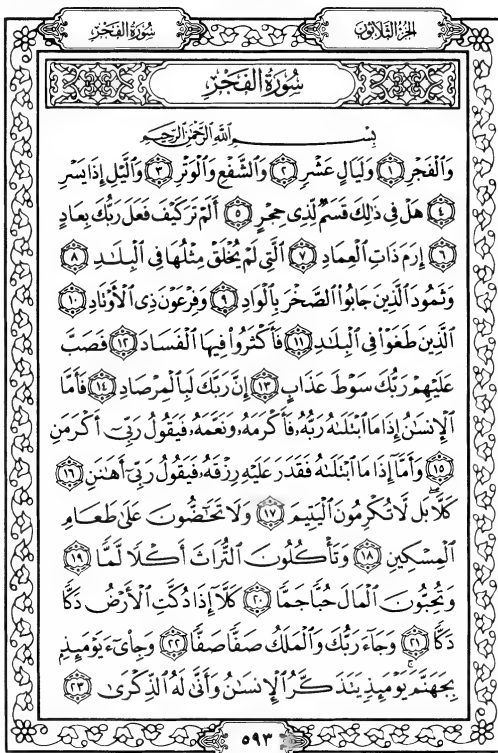 سُورَةُ الفَجْرِ
الجُزْءُ الثَّلَاثُونَ
سُورَةُ الفَجْرِ
بِسْمِ اللَّهِ الرَّحْمَٰنِ الرَّحِيمِ
وَالْفَجْرِ ١ وَلَيَالٍ عَشْرٍ ٢ وَالشَّفْعِ وَالْوَتْرِ ٣ وَالَّيْلِ إِذَا يَسْرِ
٤ هَلْ فِي ذَٰلِكَ قَسَمٌ لِّذِي حِجْرٍ ٥ أَلَمْ تَرَ كَيْفَ فَعَلَ رَبُّكَ بِعَادٍ
٦ إِرَمَ ذَاتِ الْعِمَادِ ٧ الَّتِي لَمْ يُخْلَقْ مِثْلُهَا فِي الْبِلَٰدِ ٨
وَثَمُودَ الَّذِينَ جَابُوا الصَّخْرَ بِالْوَادِ ٩ وَفِرْعَوْنَ ذِي الْأَوْتَادِ ١٠
الَّذِينَ طَغَوْا فِي الْبِلَٰدِ ١١ فَأَكْثَرُوا فِيهَا الْفَسَادَ ١٢ فَصَبَّ
عَلَيْهِمْ رَبُّكَ سَوْطَ عَذَابٍ ١٣ إِنَّ رَبَّكَ لَبِالْمِرْصَادِ ١٤ فَأَمَّا
الْإِنسَٰنُ إِذَا مَا ابْتَلَىٰهُ رَبُّهُ فَأَكْرَمَهُ وَنَعَّمَهُ فَيَقُولُ رَبِّي أَكْرَمَنِ
١٥ وَأَمَّا إِذَا مَا ابْتَلَىٰهُ فَقَدَرَ عَلَيْهِ رِزْقَهُ فَيَقُولُ رَبِّي أَهَٰنَنِ ١٦
كَلَّا بَل لَّا تُكْرِمُونَ الْيَتِيمَ ١٧ وَلَا تَحَٰٓضُّونَ عَلَىٰ طَعَامِ
الْمِسْكِينِ ١٨ وَتَأْكُلُونَ التُّرَاثَ أَكْلًا لَّمًّا ١٩
وَتُحِبُّونَ الْمَالَ حُبًّا جَمًّا ٢٠ كَلَّا إِذَا دُكَّتِ الْأَرْضُ دَكًّا
دَكًّا ٢١ وَجَاءَ رَبُّكَ وَالْمَلَكُ صَفًّا صَفًّا ٢٢ وَجِا۟يٓءَ يَوْمَئِذٍ
بِجَهَنَّمَ يَوْمَئِذٍ يَتَذَكَّرُ الْإِنسَٰنُ وَأَنَّىٰ لَهُ الذِّكْرَىٰ ٢٣
٥٩٣